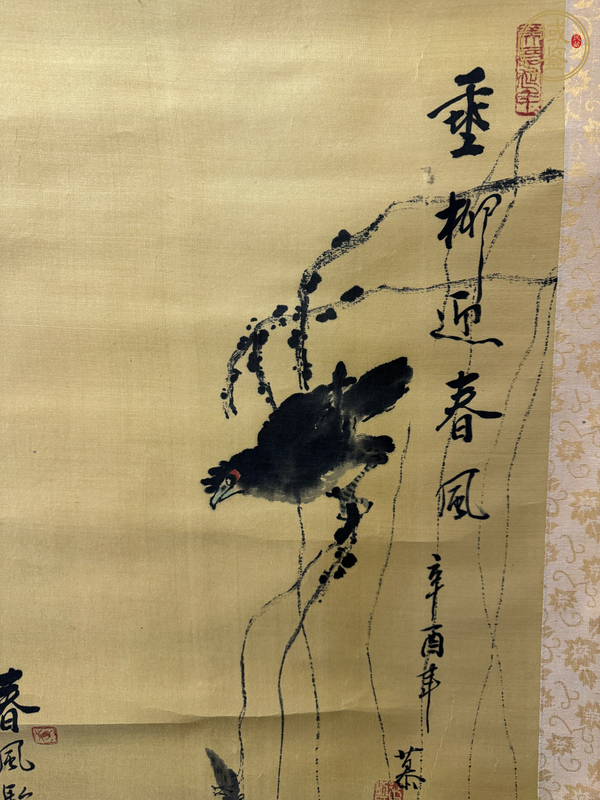 垂柳迎春风
辛酉年
慕
春风